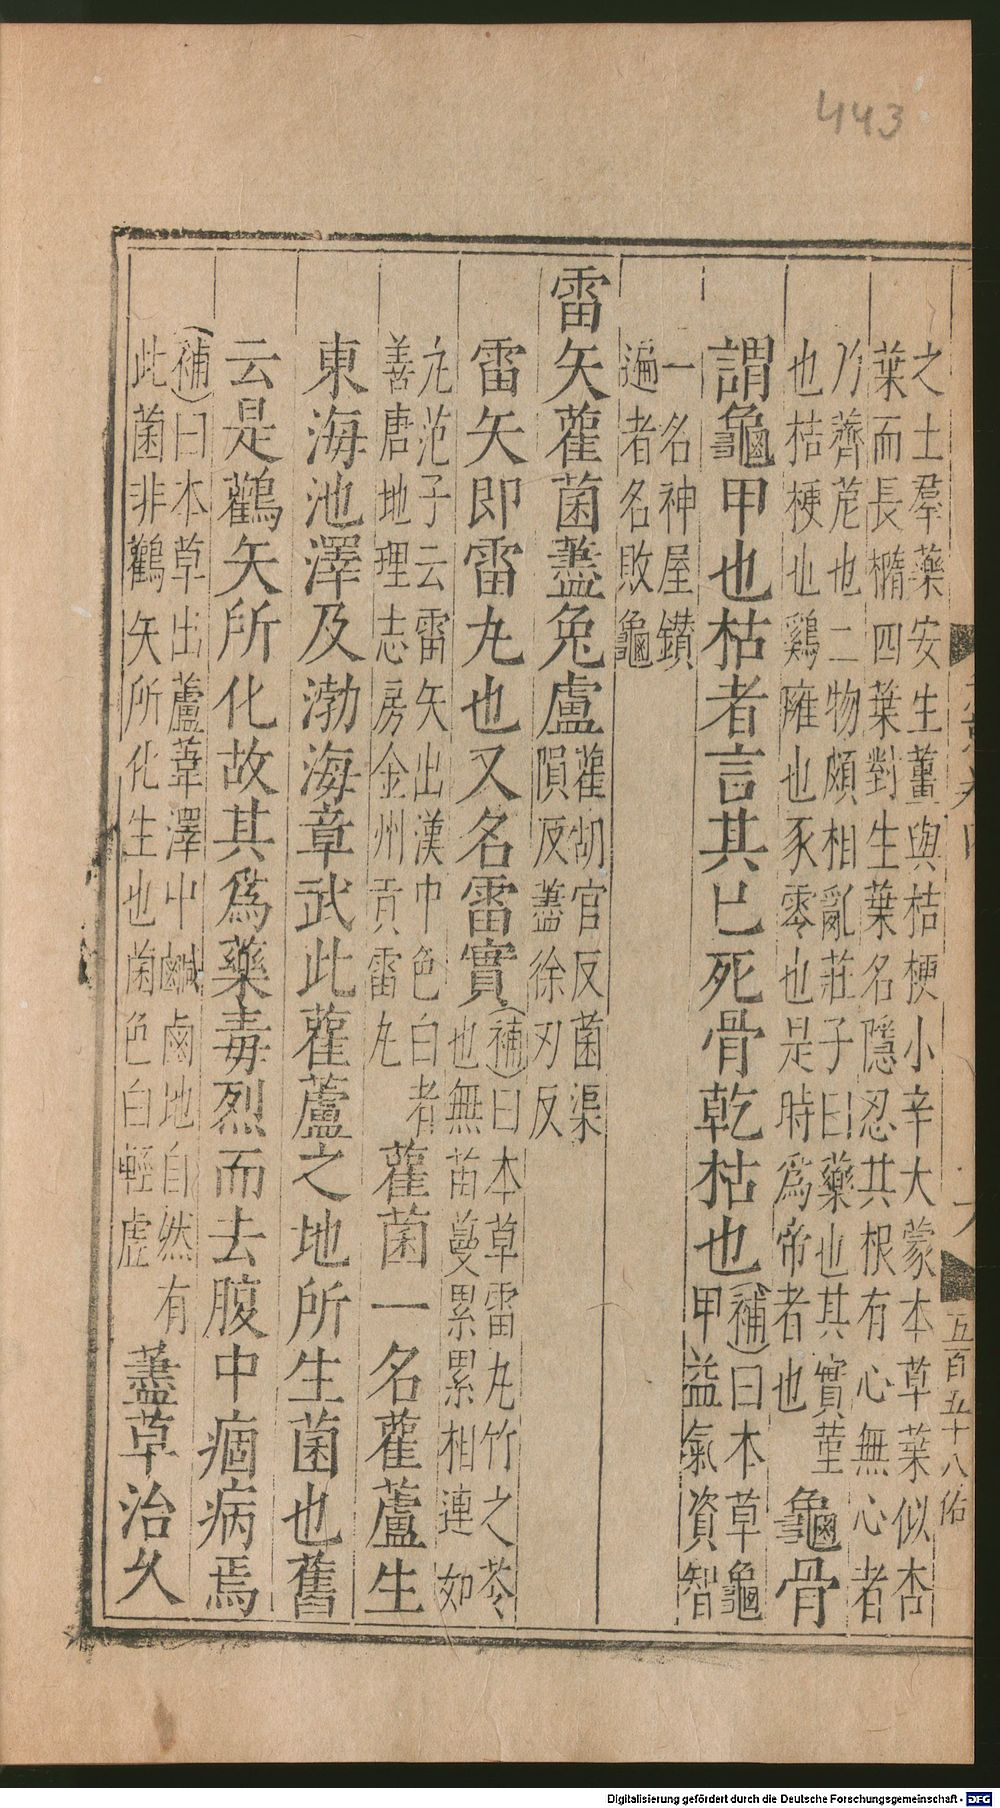 443
五百五十八佑
之土羣藥安生薑與桔梗小辛大蒙本草葉似杏
葉而長橢四葉對生葉名隱忍其根有心無心者
乃薺苨也二物頗相亂莊子曰藥也其實堇
也桔梗也鷄廱也豕零也是時爲帝者也
龜骨
謂龜甲也枯者言其已死骨乾枯也
(補)曰本草龜
甲益氣資智
一名神屋鑽
遍者名敗龜
雷矢雚菌藎兔盧
雚胡官反菌渠
隕反藎徐刃反
雷矢即雷丸也又名雷實
(補)曰本草雷丸竹之苓
也無苗蔓累累相連如
丸范子云雷矢出漢中色白者
善唐地理志房金州貢雷丸
雚菌一名雚蘆生
東海池澤及渤海章武此雚蘆之地所生菌也舊
云是鸛矢所化故其爲藥毒烈而去腹中痼病焉
(補)曰本草出蘆葦澤中鹹鹵地自然有
此菌非鸛矢所化生也菌色白輕虛
藎草治久
Digitalisierung gefördert durch die Deutsche Forschungsgemeinschaft - DFG